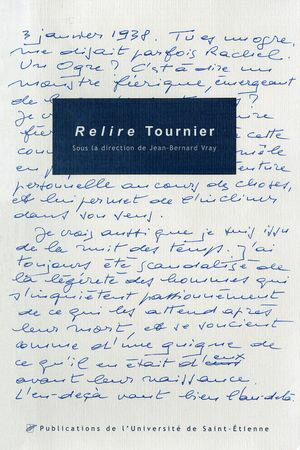 3 janvier 1938. Tu es un ogre,
me disait parfois Rachel.
Un Ogre ? C'est-à-dire un
monstre féerique, émergeant
de la
Je
cette
Relire Tournier
Sous la direction de Jean-Bernard Vray
personnelle au cours des choses,
et lui permet de l'incliner
dans son sens.
Je crois aussi que je suis issu
de la nuit des temps. J'ai
toujours été scandalisé de
la légèreté des hommes qui
s'inquiètent passionnément
de ce qui les attend après
leur mort, et se soucient
comme d'une guigne de
ce qu'il en était d'eux
avant leur naissance.
L'en-deçà vaut bien l'au-delà
Publications de l'Université de Saint-Étienne